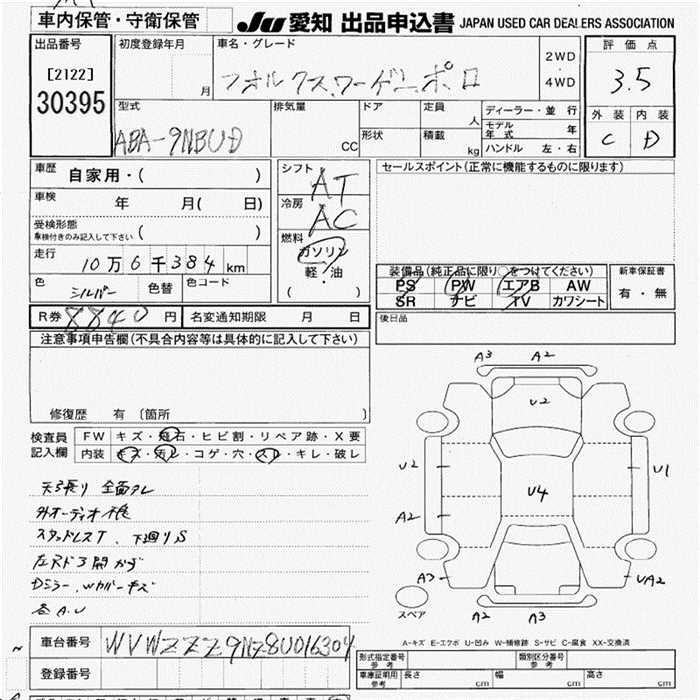 車内保管・守衛保管
JU 愛知 出品申込書 JAPAN USED CAR DEALERS ASSOCIATION
出品番号
[2122]
30395
初度登録年月
月
車名・グレード
フォルクスワーゲン ポロ
2WD
・
4WD
評価点
3.5
外装 内装
C D
型式
ABA-9NBUD
排気量
CC
ドア
形状
定員
人
積載
kg
ディーラー・並行
モデル年式 年
ハンドル 左・右
車歴 自家用・( )
車検 年 月( 日)
受検形態
車検付きのみ記入して下さい ( )
走行 10万6千384km
色 シルバー 色替 色コード
R券 8840円 名変通知期限 月 日
シフト AT
冷房 AC
燃料
ガソリン
軽・油
( )
セールスポイント(正常に機能するものに限ります)
装備品(純正品に限り○をつけてください)
PS PW エアB AW
SR ナビ TV カワシート
新車保証書
有・無
後日品
注意事項申告欄(不具合内容等は具体的に記入して下さい)
修復歴 有 〔箇所
検査員記入欄
FW キズ・飛石・ヒビ割・リペア跡・X要
内装 キズ・汚レ・コゲ・穴・スレ・キレ・破レ
天張り 全面タレ
外オーディオ
スタッドレスT、下廻りS
左Rドア開
Dミラー、Wカバーキズ
各A.U
A3 A2
U2
U2 U1
U4
A2
A3 UA2
A2 A3
スペア
A-キズ E-エクボ U-凹み W-補修跡 S-サビ C-腐食 XX-交換済
車台番号 WVWZZZ9NZ8U016304
登録番号
形式指定番号
参考
類別区分番号
参考
車庫証明用
参考
長さ cm 幅 cm 高さ cm